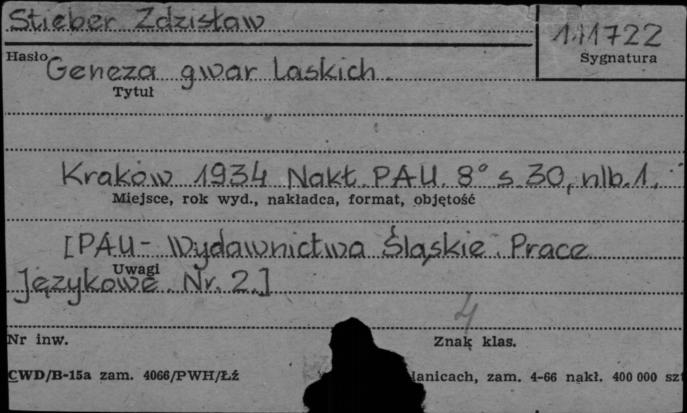 Stieber Zdzisław
Hasło
111722
Sygnatura
Geneza gwar Laskich.
Tytuł
Kraków 1934 Nakł. PAU. 8° s. 30, nlb. 1.
Miejsce, rok wyd., nakładca, format, objętość
[PAU - Wydawnictwa Śląskie. Prace
Uwagi
Językowe. Nr. 2.]
4
Nr inw.
Znak klas.
CWD/B-15a zam. 4066/PWH/Łź
zam. 4-66 nakł. 400 000 szt